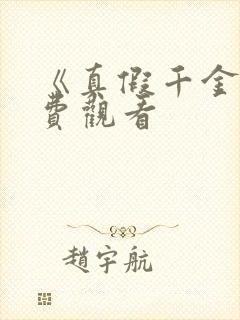 《真假千金
費觀看
趙宇航